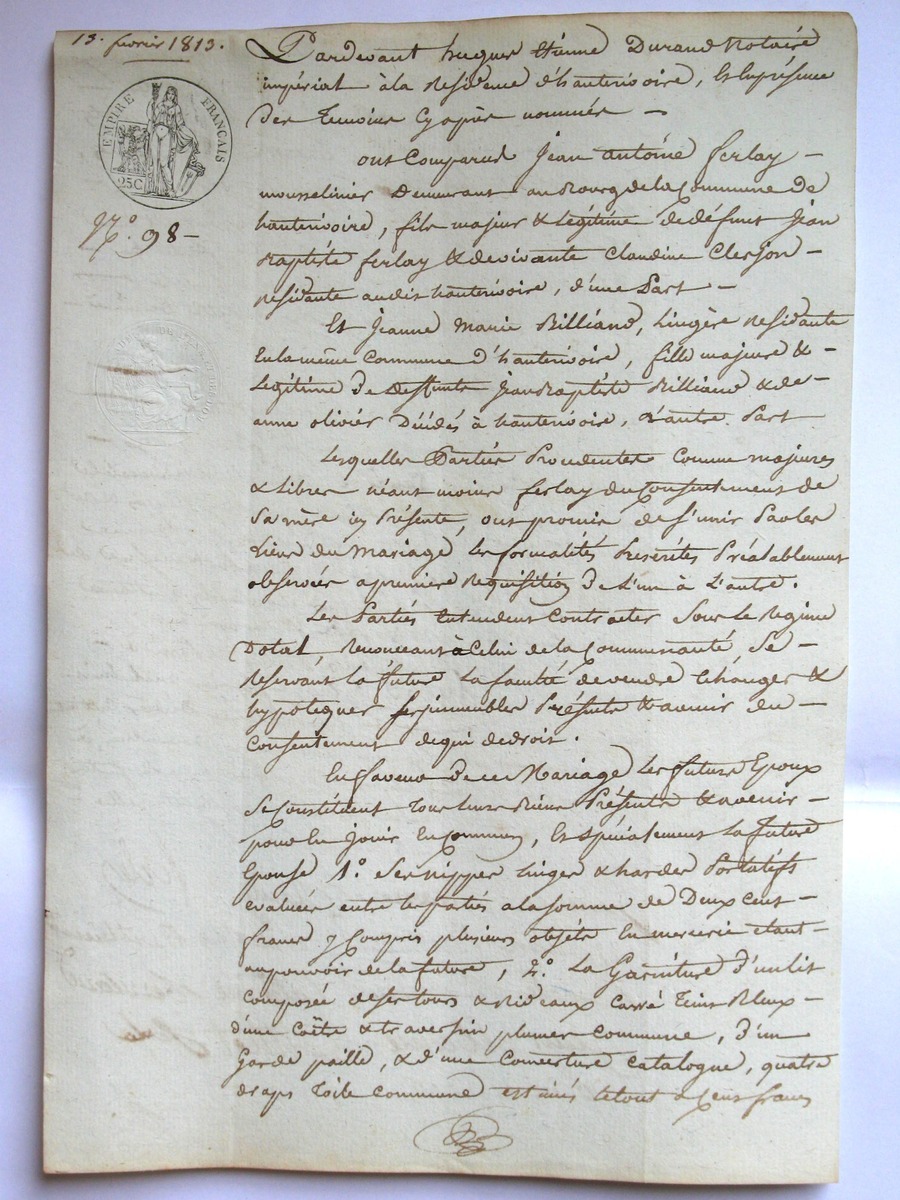 13. fevrier 1813.
EMPIRE FRANÇAIS
25C
N.º 98 –
Pardevant hugues Etienne Durand Notaire
impérial à la Residence d'hauterivoire, Et En présence
des Temoins Cy après nommés –
ont Comparus Jean antoine ferlay –
mousselinier Demeurant au Bourg de la Commune de
hauterivoire, fils majeur & Legitime de défunt Jean
Baptiste ferlay & de vivante Claudine Clerjon –
residante audit hauterivoire, d'une Part –
Et Jeanne Marie Billiand, Lingère Residante
En la même Commune d'hauterivoire, fille majeure & –
Legitime de deffunts Jean Baptiste Billiand & de –
anne olivier Décédés à hauterivoire, d'autre Part
Lesquelles Parties Procedentes Comme majeures
& Libres néant moins ferlay du Consentement de
Sa mère icy Présente, ont promis de s'unir Par les
Liens du Mariage Les formalités Prescrites Préalablement
observées a première Requisition de L'un à L'autre.
Les Parties Entendent Contracter Sous Le Regime
Dotal Renonceant à Celui de la Communauté, Se –
Reservant La future La faculté de vendre Echanger &
hypotequer ses immeubles Présents & avenir du –
Consentement de qui de droit.
En faveur de ce Mariage Les futurs Epoux
Se Constituent Tous leurs Biens Présents & avenir –
pour En Jouir En Commun, Et Spécialement La future
Epouse 1.º Ses nippes Linges & hardes Portatifs
evalués entre les parties a la somme de Deux cent –
francs y Compris plusieurs objets En mercerie etant –
au pouvoir de la future, 2.º La Garniture d'un lit
Composée de ses tours & Rideaux Carré Teint Bleux –
d'une Coëtre & traversin plumes commune, d'un
Garde paille, & d'une Couverture catalogne, quatre
draps Toile Commune estimés le tout à Cent francs